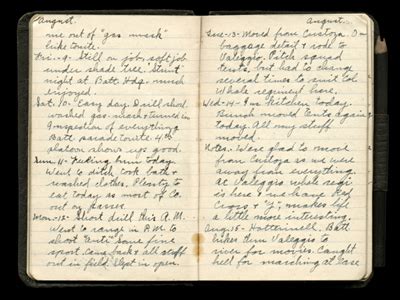 August.
me out of "gas mask"
like toute.
Fri.-9- Still on job, soft job
under shade tree. "Stunt"
night at Batt. Hdq. much
enjoyed.
Sat. 10- Easy day. Drill short
washed gas mask & turned in
Inspection of everything &
Batt parade toute. 4th
platoon shows up good.
Sun 11- Feeling bum today
Went to ditch took bath &
washed clothes. Plenty to
eat today as most of Co.
out on passes.
Mon-12- Short drill this A.M.
Went to range in P.M. to
shoot "Auti" Some fine
sport. Came back & all stuff
out in field. Slept in open.
August
Tues-13- Moved from Custoza. On
baggage detail & rode to
Valeggio. Pitch squad
tents, but had to change
several times to suit Col
Whole regiment here.
Wed-14- In kitchen today.
Bunch moved tents again
today. All my stuff
moved.
Notes- Were glad to move
from Custoza as we were
away from everything.
at Valeggio whole regi.
is here & we have Red
Cross & "Y", makes life
a little more interesting.
Aug-15- Hotterinell. Batt
hikes from Valeggio to
river for movies. Caught
hell for marching at ease